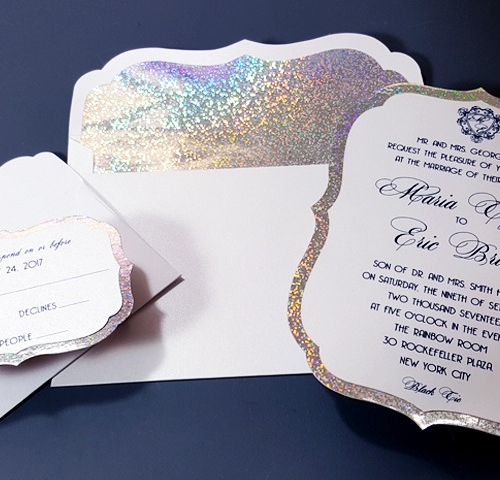 spond on or before
24, 2017
DECLINES
PEOPLE
MR AND MRS. GEORG
REQUEST THE PLEASURE OF Y
AT THE MARRIAGE OF THEIR
Maria
TO
Eric Bri
SON OF DR AND MRS. SMITH H
ON SATURDAY, THE NINETH OF SE
TWO THOUSAND SEVENTEE
AT FIVE O'CLOCK IN THE EVE
THE RAINBOW ROOM
30 ROCKEFELLER PLAZA
NEW YORK CITY
Black Tie